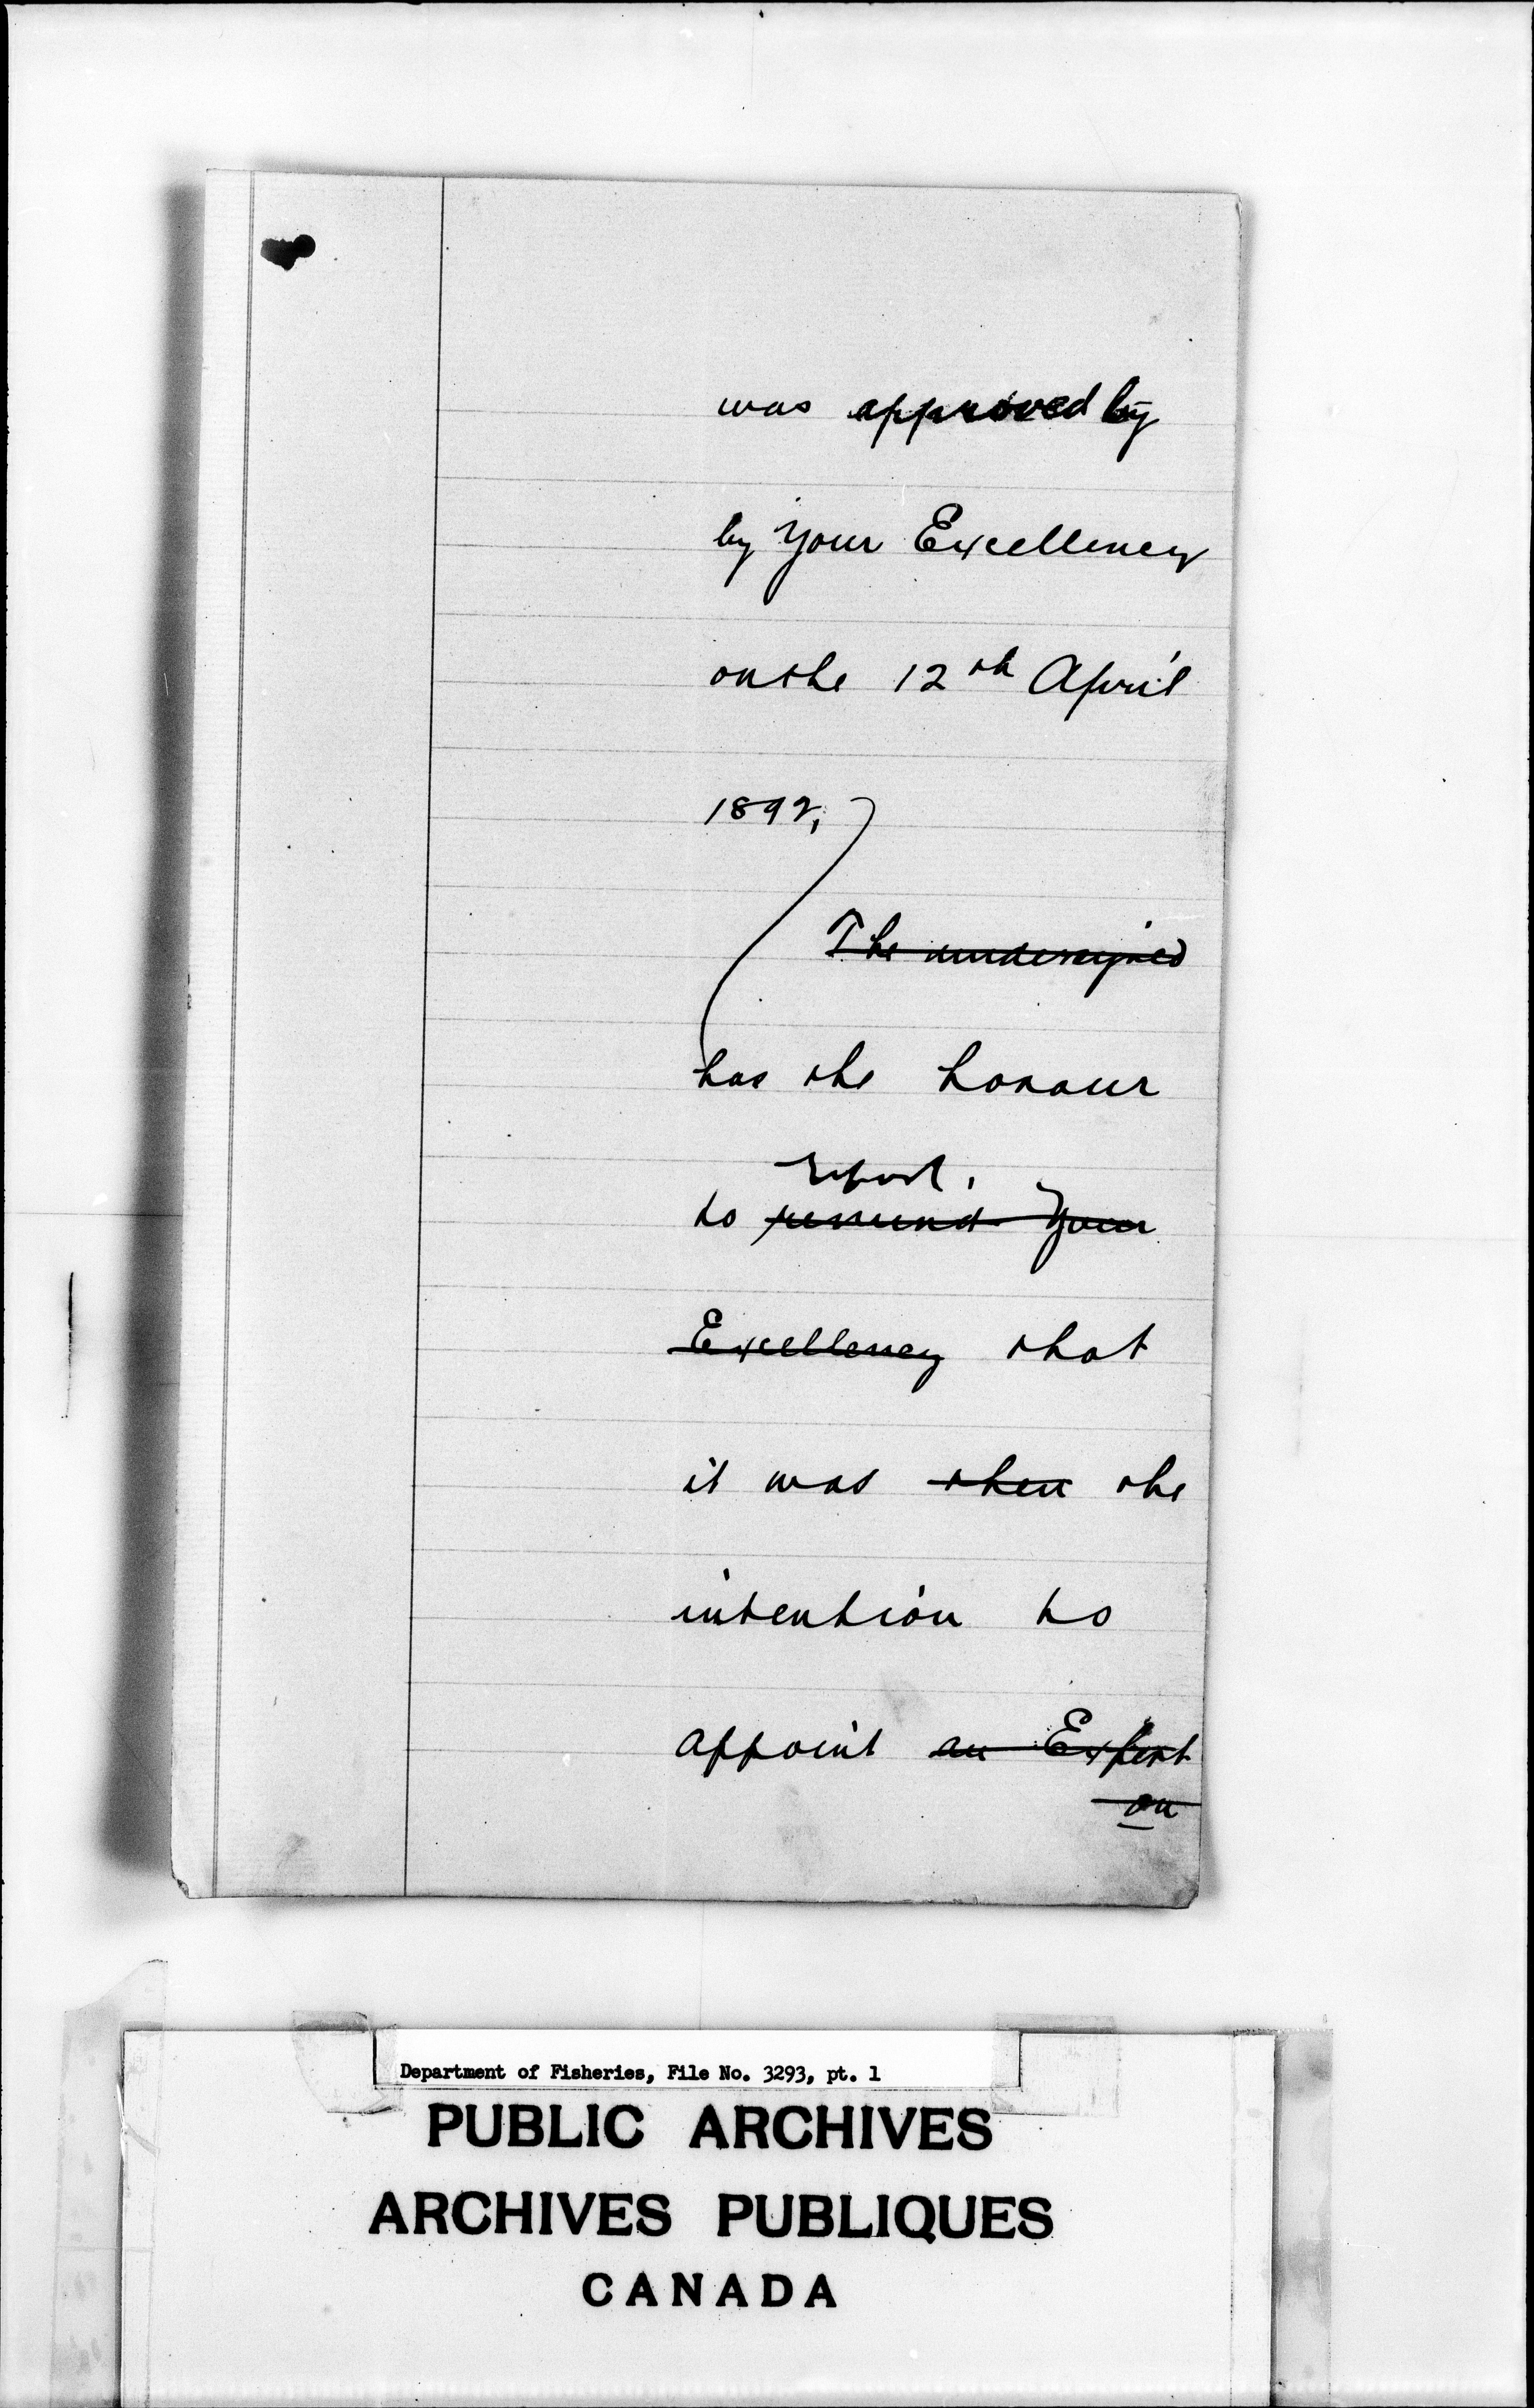 was approved by
by Your Excellency
on the 12th April
1892,
The undersigned
has the honour
report.
to remind Your
Excellency that
it was then the
intention to
appoint an Expert
on
Department of Fisheries, File No. 3293, pt. 1
PUBLIC ARCHIVES
ARCHIVES PUBLIQUES
CANADA